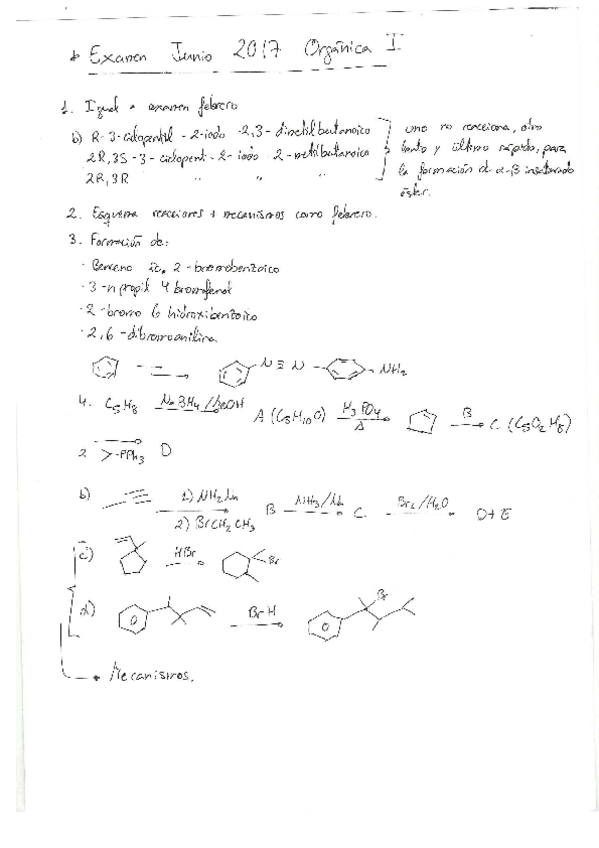 * Examen Junio 2017 Orgánica I
1. Igual a examen febrero
b) R-3-ciclopentil-2-iodo-2,3-dimetilbutanoico
2R,3S-3-ciclopenti-2-iodo 2-metilbutanoico
2R,3R " " "
uno no reacciona, otro
lento y último rápido, para
la formación de α-β insaturado
éster.
2. Esquema reacciones + mecanismos como febrero.
3. Formación de:
· Benceno ác. 2-bromobenzoico
· 3-n propil 4 bromofenol
· 2-bromo 6 hidroxibenzoico
· 2,6-dibromoanilina
N≡N NH2
4. C5H8 NaBH4/AcOH A (C5H10O) H3PO4 Δ B C (C5O2H8)
2 >-PPh3 D
b) 1) NH2Na B NH3/Na C Br2/H2O D+E
2) BrCH2CH3
c) HBr Br
d) BrH Br
Mecanismos.